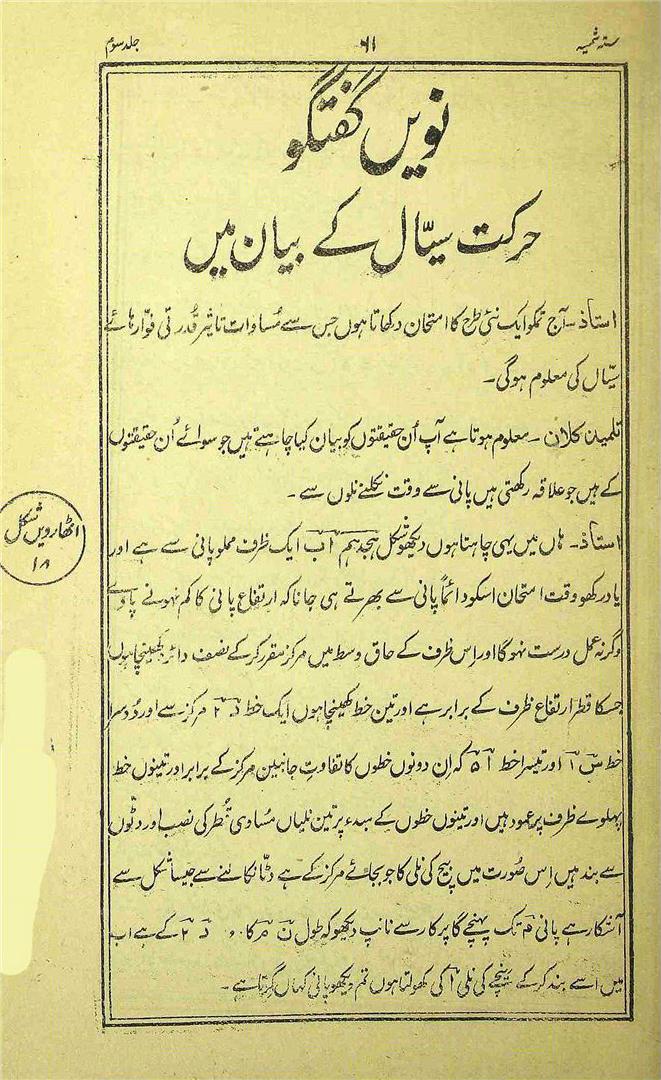 ستہ شمسیہ
۶۱
جلد سوم
نویں گفتگو
حرکت سیّال کے بیان میں
استاذ۔ آج تمکو ایک نئی طرح کا امتحان دکھاتا ہوں جس سے مُساوات تاثیر قُدرتی فوّارہائے
سیّال کی معلوم ہوگی۔
تلمیذ کلان ۔ معلوم ہوتا ہے آپ اُن حقیقتوں کو بیان کیا چاہتے ہیں جو سوائے اُن حقیقتوں
کے ہیں جو علاقہ رکھتی ہیں پانی سے وقت نکلنے نلوں سے ۔
استاذ۔ ہاں میں یہی چاہتا ہوں دیکھو شکل ہجدہم اب ایک ظرف مملو پانی سے ہے اور
یاد رکھو وقت امتحان اسکو دائماً پانی سے بھرتے ہی جانا کہ ارتفاع پانی کا کم نہونے پاوے
وگرنہ عمل درست نہوگا اور اس ظرف کے حاق وسط میں مرکز مقرر کرکے نصف دائرہ کھینچا ہوں
جسکا قطر ارتفاع ظرف کے برابر ہے اور تین خط کھینچا ہوں ایک خط د ۲ مرکز سے اور دُوسرا
خط س ۱ اور تیسرا خط ۱ ۵ کہ اِن دونوں خطوں کا تفاوت جانبین مرکز کے برابر اور تینوں خط
پہلوے ظرف پر عمود ہیں اور تینوں خطوں کے مبدء پر تین نلیاں مُساوی قُطر کی نصب اور دٹّوں
سے بند ہیں اِس صُورت میں بیچ کی نلی کا جو بجائے مرکز کے ہے دٹّا نکالنے سے جیسا شکل سے
آشکار ہے پانی م تک پہنچے گا پرکار سے ناپ دیکھو کہ طول ن م کا د ۲ کے ہے اب
میں اسے بند کرکے نیچے کی نلی ۱ کی کھولتا ہوں تم دیکھو پانی کہاں گرتا ہے ۔
اٹھارویں شکل
۱۸